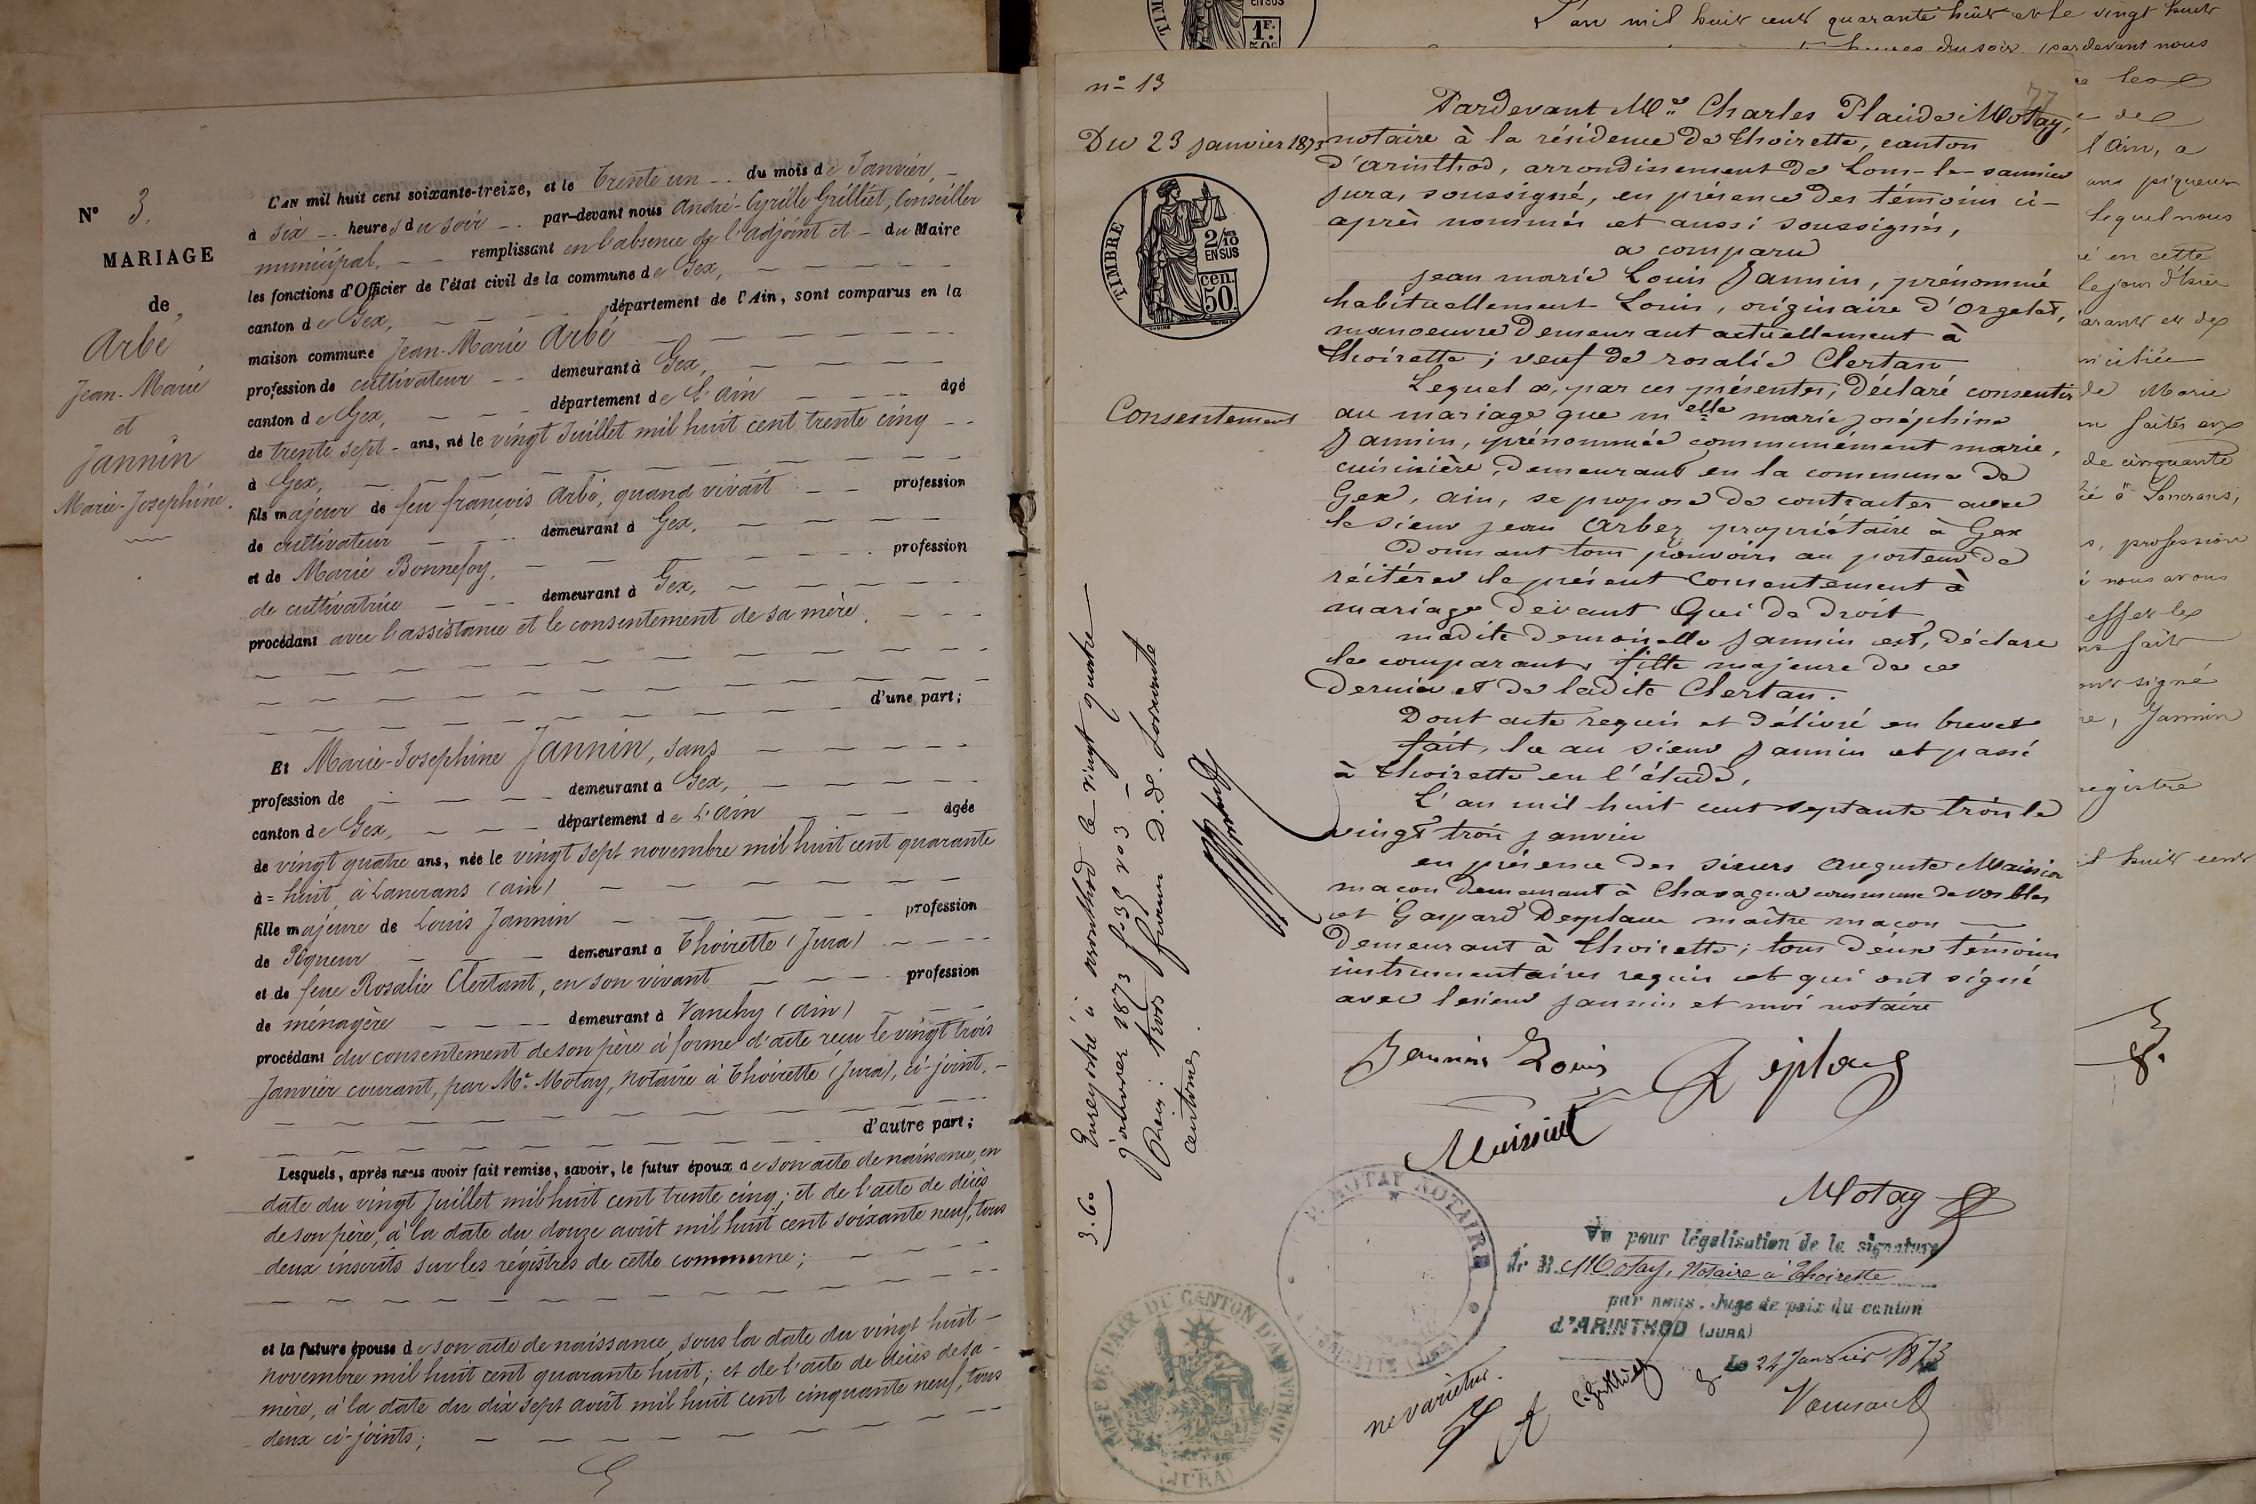 N° 3.
MARIAGE
de
Arbé
Jean-Marie
et
Jannin
Marie-Josephine.
L'AN mil huit cent soixante-treize, et le Trente un du mois de Janvier,
à six heures du soir par-devant nous André-Cyrille Grilliet, Conseiller
municipal, remplissant en l'absence de l'adjoint et du Maire
les fonctions d'Officier de l'état civil de la commune de Gex,
canton de Gex, département de l'Ain, sont comparus en la
maison commune Jean-Marie Arbé
profession de cultivateur demeurant à Gex,
canton de Gex, département de L'Ain âgé
de trente sept ans, né le vingt Juillet mil huit cent trente cinq
à Gex,
fils majeur de feu françois Arbé, quand vivait profession
de cultivateur demeurant à Gex,
et de Marie Bonnefoy, profession
de cultivatrice demeurant à Gex,
procédant avec l'assistance et le consentement de sa mère.
d'une part;
Et Marie-Josephine Jannin, sans
profession de demeurant à Gex,
canton de Gex, département de L'Ain âgée
de vingt quatre ans, née le vingt sept novembre mil huit cent quarante
à = huit, à Lancrans (Ain)
fille majeure de Louis Jannin profession
de Piqueur demeurant à Thoirette (Jura)
et de feue Rosalie Clertant, en son vivant profession
de ménagère demeurant à Vanchy (Ain)
procédant du consentement de son père à forme d'acte reçu le vingt trois
Janvier courant, par Me. Motay, notaire à Thoirette (Jura), ci-joint.
d'autre part;
Lesquels, après nous avoir fait remise, savoir, le futur époux de son acte de naissance, en
date du vingt Juillet mil huit cent trente cinq; et de l'acte de décès
de son père, à la date du douze août mil huit cent soixante neuf, tous
deux inscrits sur les régistres de cette commune;
et la future épouse de son acte de naissance, sous la date du vingt huit
novembre mil huit cent quarante huit; et de l'acte de décès de sa
mère, à la date du dix sept août mil huit cent cinquante neuf, tous
deux ci-joints;
n° 13
Du 23 janvier 1873
TIMBRE
2/10
EN SUS
50 cen.
Consentement
77
Pardevant Me Charles Placide Motay,
notaire à la résidence de Thoirette, canton
d'Arinthod, arrondissement de Lons-le-saunier
Jura, soussigné, en présence des témoins ci-
après nommés et aussi soussignés,
a comparu
Jean marie Louis Jannin, prénommé
habituellement Louis, originaire d'Orgelet,
manoeuvre demeurant actuellement à
Thoirette; veuf de rosalie Clertan
Lequel a, par ces présentes, déclaré consentir
au mariage que melle marie joséphine
Jannin, prénommée communément marie,
cuisinière, demeurant en la commune de
Gex, Ain, se propose de contracter avec
le sieur jean Arbez propriétaire à Gex
Donnant tous pouvoirs au porteur de
réitérer le présent consentement à
mariage devant Qui de droit
madite demoiselle Jannin est, déclare
le comparant, fille majeure de ce
dernier et de ladite Clertan.
Dont acte requis et délivré en brevet
fait, lu au sieur Jannin et passé
à Thoirette en l'étude,
L'an mil huit cent septante trois le
vingt trois janvier
en présence des sieurs Auguste Maissiat
maçon demeurant à Chavagna commune de vosbles
et Gaspard Desplaux maître maçon
demeurant à Thoirette; tous deux témoins
instrumentaires requis et qui ont signé
avec le sieur Jannin et moi notaire
Jannin Louis
Motay
Enregistré à arinthod le vingt quatre
janvier 1873 f° 35 v° 3
Reçu: trois francs
centimes.
3.60
MOTAY NOTAIRE
(JURA)
Vu pour légalisation de la signature
de M. Motay, Notaire à Thoirette
par nous, Juge de paix du canton
d'ARINTHOD (JURA)
Le 24 Janvier 1873
ne varietur.
JUSTICE DE PAIX DU CANTON D'ARINTHOD
(JURA)
1F.
EN SUS
L'an mil huit cent quarante huit et le vingt huit
heures du soir, pardevant nous
les
de
l'Ain, a
piqueur
lequel nous
en cette
le jour d'hier
de Marie
faites aux
de cinquante
à Lancrans,
profession
nous avons
effet les
fait
signé
Jannin
registre
huit cent